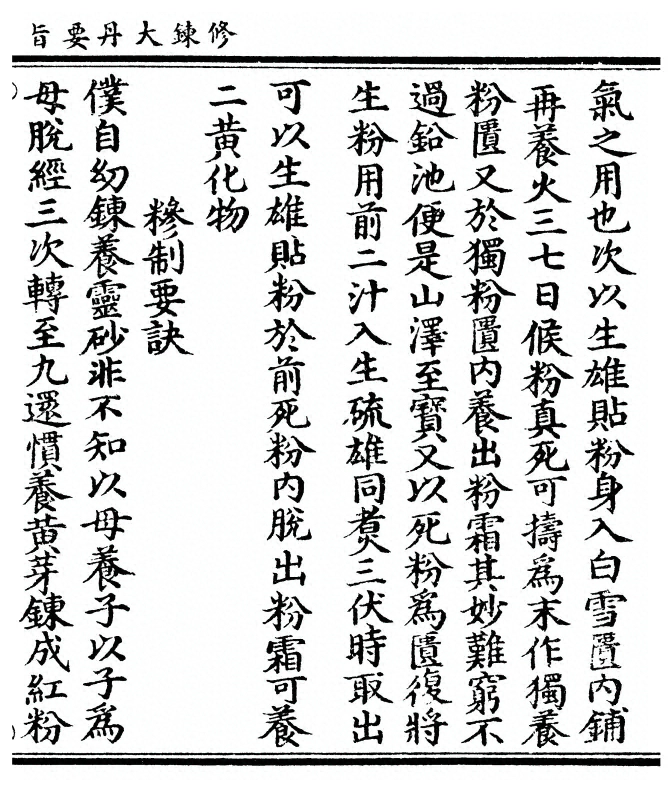 修鍊大丹要旨
氣之用也次以生雄貼粉身入白雪匱内鋪
再養火三七日候粉真死可擣爲末作獨養
粉匱又於獨粉匱内養出粉霜其妙難窮不
過鉛池便是山澤至寳又以死粉爲匱復將
生粉用前二汁入生硫雄同煑三伏時取出
可以生雄貼粉於前死粉内脫出粉霜可養
二黄化物
糝制要訣
僕自幼鍊養靈砂非不知以母養子以子爲
母脫經三次轉至九還慣養黄芽鍊成紅粉